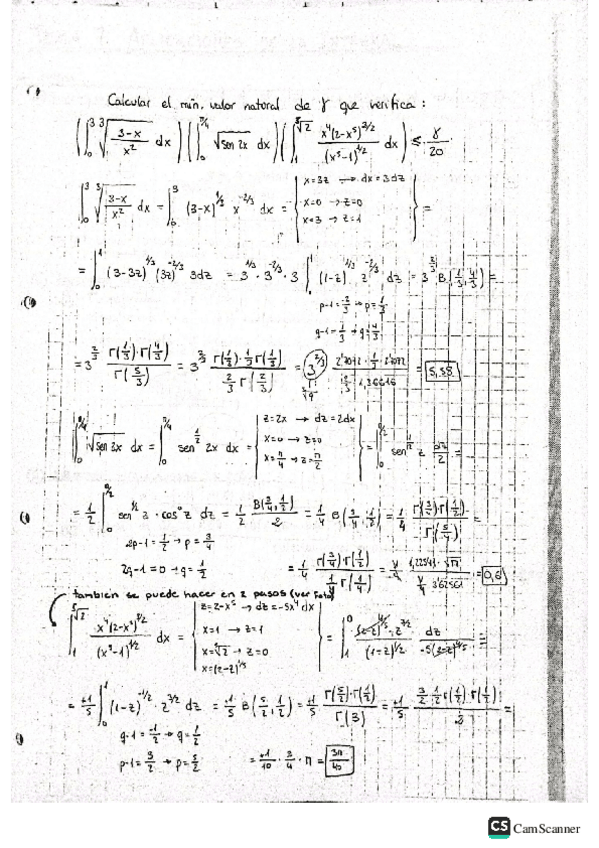 Calcular el mín. valor natural de γ que verifica:
(∫₀³ ∛((3-x)/x²) dx) (∫₀^(π/4) √(sen 2x) dx) (∫₁^(⁵√2) x⁴(2-x⁵)^(3/2) / (x⁵-1)^(1/2) dx) ≤ γ/20
∫₀³ ∛((3-x)/x²) dx = ∫₀³ (3-x)^(1/3) x^(-2/3) dx = { x=3z → dx=3dz
x=0 → z=0
x=3 → z=1 } =
= ∫₀¹ (3-3z)^(1/3) (3z)^(-2/3) 3dz = 3^(1/3) · 3^(-2/3) · 3 ∫₀¹ (1-z)^(1/3) z^(-2/3) dz = 3^(2/3) B(1/3, 4/3) =
q-1 = 1/3 → q = 4/3
= 3^(2/3) Γ(1/3)·Γ(4/3) / Γ(5/3) = 3^(2/3) Γ(1/3)·1/3 Γ(1/3) / (2/3 Γ(2/3)) =
∫₀^(π/4) √(sen 2x) dx = ∫₀^(π/4) sen^(1/2) 2x dx = { z=2x → dz=2dx
x=0 → z=0
x=π/4 → z=π/2 } = ∫₀^(π/2) sen^(1/2) z dz/2 =
= 1/2 ∫₀^(π/2) sen^(1/2) z · cos⁰ z dz = 1/2 B(3/4, 1/2)/2 = 1/4 B(3/4, 1/2) = 1/4 Γ(3/4)·Γ(1/2) / Γ(5/4) =
2p-1 = 1/2 → p = 3/4
2q-1 = 0 → q = 1/2
= 1/4 Γ(3/4)·Γ(1/2) / (1/4 Γ(1/4)) =
también se puede hacer en 2 pasos (ver foto)
∫₁^(⁵√2) x⁴(2-x⁵)^(3/2) / (x⁵-1)^(1/2) dx = { z=2-x⁵ → dz=-5x⁴dx
x=1 → z=1
x=⁵√2 → z=0
x=(2-z)^(1/5) } =
= +1/5 ∫₀¹ (1-z)^(-1/2) · z^(3/2) dz = +1/5 B(5/2, 1/2) = +1/5 Γ(5/2)·Γ(1/2) / Γ(3) =
q-1 = -1/2 → q = 1/2
p-1 = 3/2 → p = 5/2
= +1/10 · 3/4 · π = 3π/40
CS CamScanner